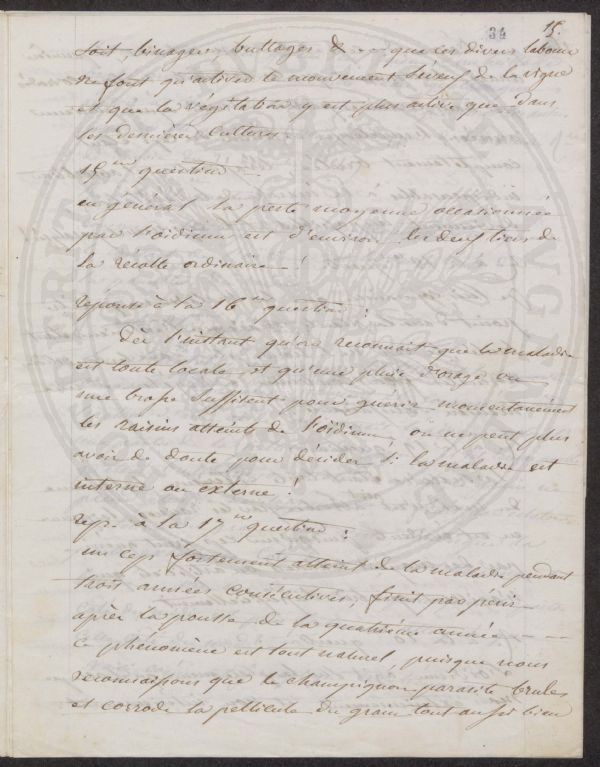 34 15.
soit, binages buttages & -- que ces divers labours
ne font qu'activer le mouvement séveux de la vigne
et que la végétation y est plus active que dans
les dernières cultures.
15me question
en général la perte moyenne occasionnée
par l'oïdium est d'environ les deux tiers de
la récolte ordinaire !
réponse à la 16me question :
Dès l'instant qu'on reconnait que la maladie
est toute locale et qu'une pluie d'orage ou
une brosse suffisent pour guérir momentanément
les raisins atteints de l'oïdium, on ne peut plus
avoir de doute pour décider si la maladie est
interne ou externe !
rep. à la 17me question :
un cep fortement atteint de la maladie pendant
trois années consécutives, finit par périr
après la pousse de la quatrième année - - -
ce phénomène est tout naturel, puisque nous
reconnaissons que le champignon parasite brule
et corrode la pellicule du grain tout aussi bien